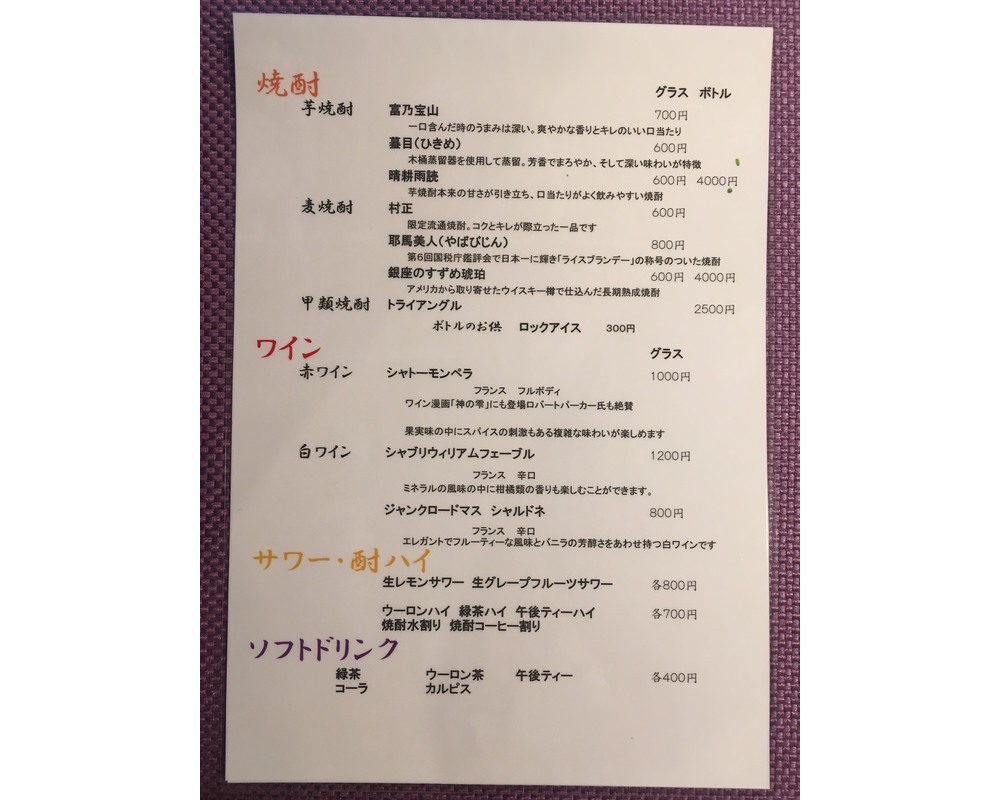 焼酎
グラス ボトル
芋焼酎 富乃宝山 700円
一口含んだ時のうまみは深い。爽やかな香りとキレのいい口当たり
蟇目(ひきめ) 600円
木桶蒸留器を使用して蒸留。芳香でまろやか、そして深い味わいが特徴
晴耕雨読 600円 4000円
芋焼酎本来の甘さが引き立ち、口当たりがよく飲みやすい焼酎
麦焼酎 村正 600円
限定流通焼酎。コクとキレが際立った一品です
耶馬美人(やばびじん) 800円
第6回国税庁鑑評会で日本一に輝き「ライスブランデー」の称号のついた焼酎
銀座のすずめ琥珀 600円 4000円
アメリカから取り寄せたウイスキー樽で仕込んだ長期熟成焼酎
甲類焼酎 トライアングル 2500円
ボトルのお供 ロックアイス 300円
ワイン
グラス
赤ワイン シャトーモンペラ 1000円
フランス フルボディ
ワイン漫画「神の雫」にも登場ロバートパーカー氏も絶賛
果実味の中にスパイスの刺激もある複雑な味わいが楽しめます
白ワイン シャブリウィリアムフェーブル 1200円
フランス 辛口
ミネラルの風味の中に柑橘類の香りも楽しむことができます。
ジャンクロードマス シャルドネ 800円
フランス 辛口
エレガントでフルーティーな風味とバニラの芳醇さをあわせ持つ白ワインです
サワー・酎ハイ
生レモンサワー 生グレープフルーツサワー 各800円
ウーロンハイ 緑茶ハイ 午後ティーハイ 各700円
焼酎水割り 焼酎コーヒー割り
ソフトドリンク
緑茶 ウーロン茶 午後ティー 各400円
コーラ カルピス